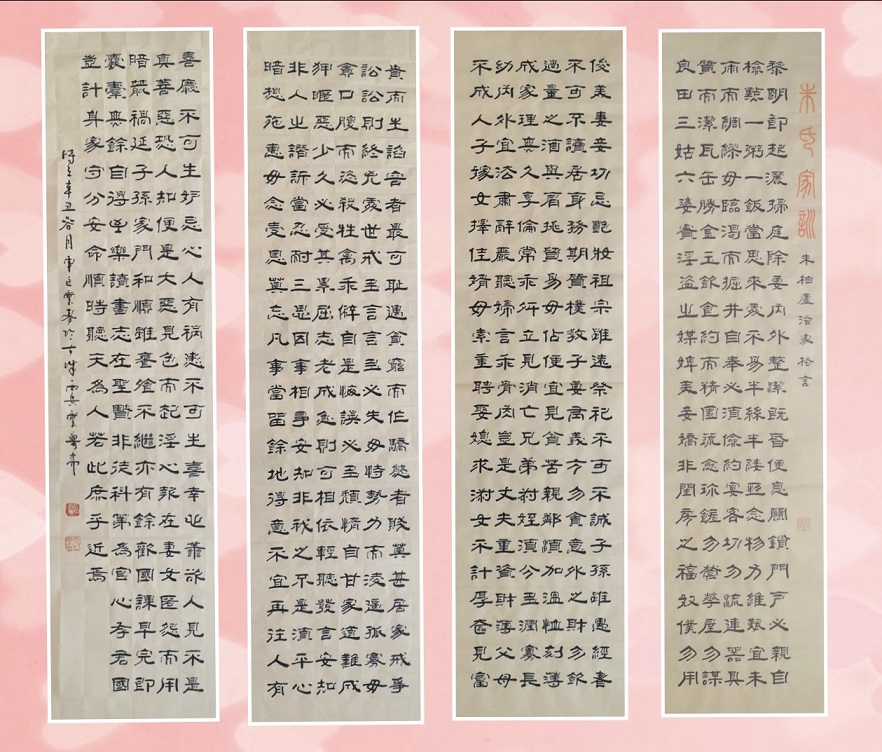 朱氏家訓
朱柏廬治家格言
黎明即起灑掃庭除要内外整潔既昏便息關鎖門戶必親自
檢點一粥一飯當思來處不易半絲半縷恆念物力維艱宜未
雨而綢繆毋臨渴而掘井自奉必須儉約宴客切勿流連器具
質而潔瓦缶勝金玉飲食約而精園蔬愈珍饈勿營華屋勿謀
良田三姑六婆實淫盗之媒婢美妾嬌非閨房之福奴僕勿用
俊美妻妾切忌艷妝祖宗雖遠祭祀不可不誠子孫雖愚經書
不可不讀居身務期質樸教子要有義方勿貪意外之財勿飲
過量之酒與肩挑貿易毋佔便宜見貧苦親鄰須加溫恤刻薄
成家理無久享倫常乖舛立見消亡兄弟叔侄須分多潤寡長
幼内外宜法肅辭嚴聽婦言乖骨肉豈是丈夫重資財薄父母
不成人子嫁女擇佳婿毋索重聘娶媳求淑女不計厚奩見富
貴而生諂容者最可恥遇貧窮而作驕態者賤莫甚居家戒爭
訟訟則終凶處世戒多言言多必失毋恃勢力而凌逼孤寡毋
貪口腹而恣殺牲禽乖僻自是悔誤必多頹惰自甘家道難成
狎暱惡少久必受其累屈志老成急則可相依輕聽發言安知
非人之譖訴當忍耐三思因事相爭安知非我之不是須平心
暗想施惠毋念受恩莫忘凡事當留餘地得意不宜再往人有
喜慶不可生妒忌心人有禍患不可生喜幸心善欲人見不是
真善惡恐人知便是大惡見色而起淫心報在妻女匿怨而用
暗箭禍延子孫家門和順雖饔飧不繼亦有餘歡國課早完即
囊橐無餘自得至樂讀書志在聖賢非徒科第為官心存君國
豈計身家守分安命順時聽天為人若此庶乎近焉
時在辛丑